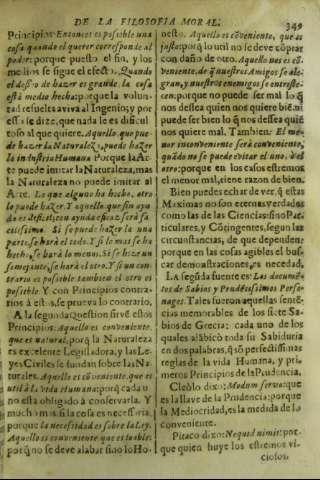 DE LA FILOSOFIA MORAL. 349
Principios. Entonces es posible una
cosa quando el querer corresponde al
poder: porque puesto el fin, y los
medios se sigue el efecto. Quando
el desseo de hazer es grande la cosa
está medio hecha: porque la volun-
tad resuelta aviva al Ingenio; y por
esso se dize, que nada le es dificul-
toso al que quiere. Aquello que pue-
de hazer la Naturaleza, puede hazer
lo industria Humana. Porque la Ar-
te puede imitar la Naturaleza, mas
la Naturaleza no puede imitar al
Arte. Lo que alguno ha hecho, otro
lo puede hazer. Y aquello que sin ayu
da es dificil, con ayuda eficaz será fa
cilissimo. Si se puede hazer la una
parte, se hará el todo. Y si lo mas se ha
hecho, se hará lo menos. Si se hize un
semejante, se hará el otro. Y si un con-
trario es posible tambien el otro es
posible. Y con Principios contra-
rios à estos, se prueva lo contrario.
A la segunda Question sirvē estos
Principios. Aquello es conveniente,
que es natural, porq̃ la Naturaleza
es excelente Legisladora, y las Le-
yes Civiles se fundan sobre las Na-
turales. Aquello es cōveniente, que es
util à la vida Humana: porq̃ cada u
no está obligado à conservarla. Y
mucho mas si la cosa es necessaria,
porque la necessidad es sobre la Ley.
Aquello es conveniente que es loable:
porq̃ no se deve alabar sino lo Ho-
nesto. Aquello es cōveniente, que es
justo: porq̃ lo util no se deve cōprar
con daño de otro. Aquello nos es cō-
veniente, de q̃ nuestros Amigos se ale-
gran, y nuestros enemigos se entriste-
cen: porque no puede ser mal lo q̃
nos dessea quien nos quiere bien: ni
puede ser bien lo q̃ nos dessea quiē
nos quiere mal. Tambien: El me-
nor inconveniente será conveniente,
quādo no se puede evitar el uno, ò el
otro: porque en los casos estremos
el menor mal, tiene razon de bien.
Bien puedes echar de ver, q̃ estas
Maximas no son eternas verdades
como las de las Ciencias: sino Par-
ticulares, y Cōtingentes, segun las
circunstancias, de que dependen:
porque en las cosas agibles el bus-
car demostraciones, es necedad.
La segūda fuente es: Los documē-
tos de Sabios y Prudētissimos Perso-
nages. Tales fueron aquellas sentē-
cias memorables de los siete Sa-
bios de Grecia; cada uno de los
quales alābicò toda su Sabiduria
en dos palabras, q̃ sō perfectissimas
reglas de la vida Humana, y pri-
meros Principios de la Prudencia.
Cleòlo dixo: Modum serva: que
es la llave de la Prudencia; porque
la Mediocridad, es la medida de lo
conveniente.
Pitaco dixo: Ne quid nimis: por-
que quien huye los estremos vi-
ciosos,